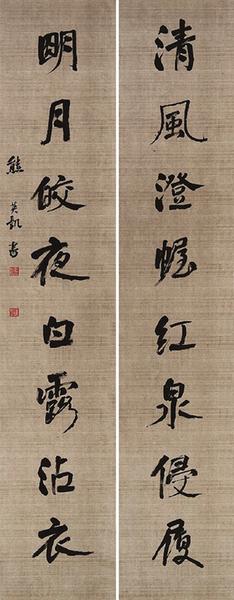 清風澄幄紅泉侵履
明月皎夜白露沾衣
熊英凱書